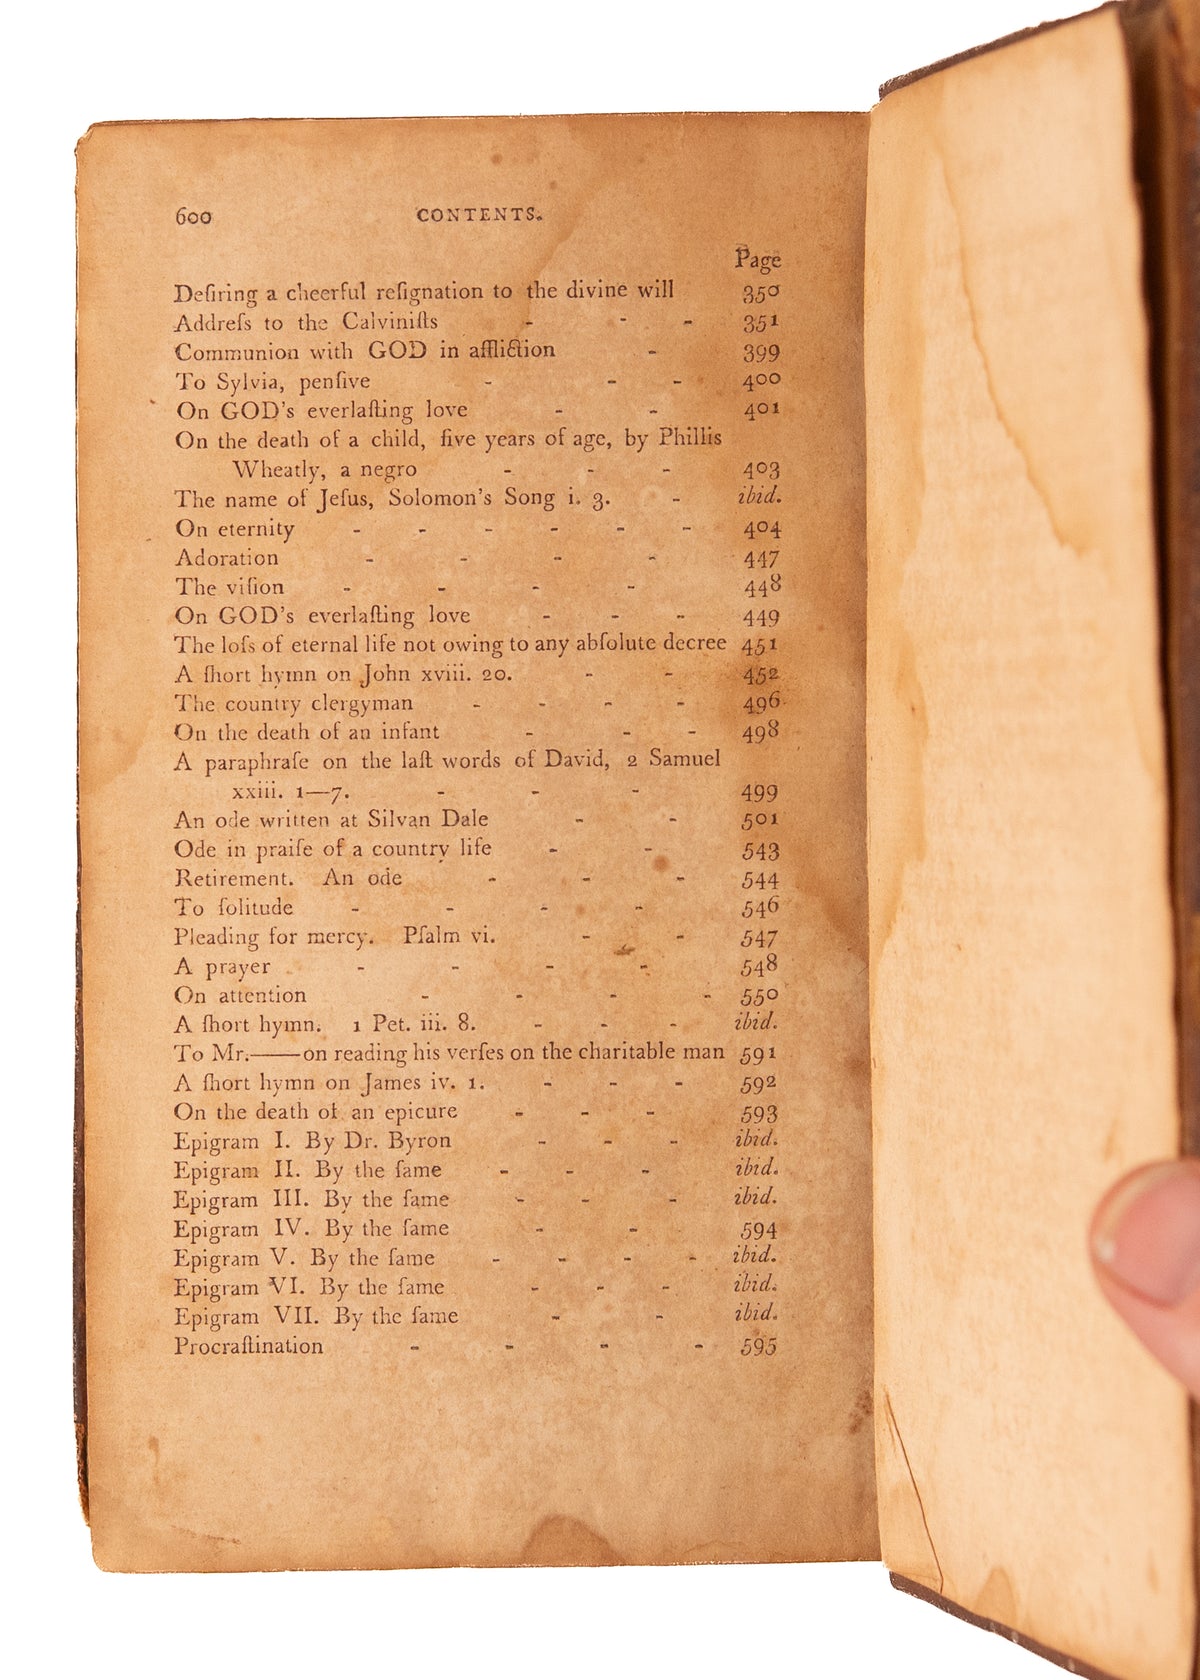 600 CONTENTS.
Page
Deſiring a cheerful reſignation to the divine will 350
Addreſs to the Calviniſts - - - 351
Communion with GOD in affliction - 399
To Sylvia, penſive - - - 400
On GOD's everlaſting love - - 401
On the death of a child, five years of age, by Phillis
Wheatly, a negro - - - 403
The name of Jeſus, Solomon's Song i. 3. - ibid.
On eternity - - - - - - 404
Adoration - - - - 447
The viſion - - - - 448
On GOD's everlaſting love - - - 449
The loſs of eternal life not owing to any abſolute decree 451
A ſhort hymn on John xviii. 20. - - 452
The country clergyman - - - - 496
On the death of an infant - - - 498
A paraphraſe on the laſt words of David, 2 Samuel
xxiii. 1—7. - - - 499
An ode written at Silvan Dale - - 501
Ode in praiſe of a country life - - 543
Retirement. An ode - - - 544
To ſolitude - - - - 546
Pleading for mercy. Pſalm vi. - - 547
A prayer - - - - 548
On attention - - - - 550
A ſhort hymn. 1 Pet. iii. 8. - - - ibid.
To Mr.——on reading his verſes on the charitable man 591
A ſhort hymn on James iv. 1. - - - 592
On the death of an epicure - - - 593
Epigram I. By Dr. Byron - - - ibid.
Epigram II. By the ſame - - - ibid.
Epigram III. By the ſame - - - ibid.
Epigram IV. By the ſame - - 594
Epigram V. By the ſame - - - - ibid.
Epigram VI. By the ſame - - - ibid.
Epigram VII. By the ſame - - ibid.
Procraſtination - - - - 595